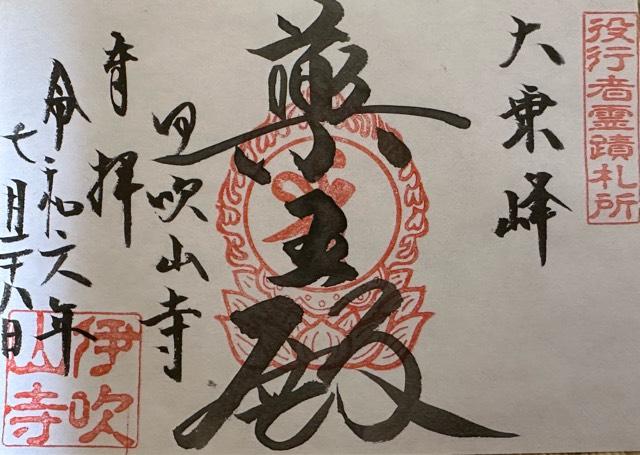 役行者霊蹟札所
大乗峰
薬王殿
伊吹山寺
奉拝
令和六年
七月二十八日
伊吹山寺